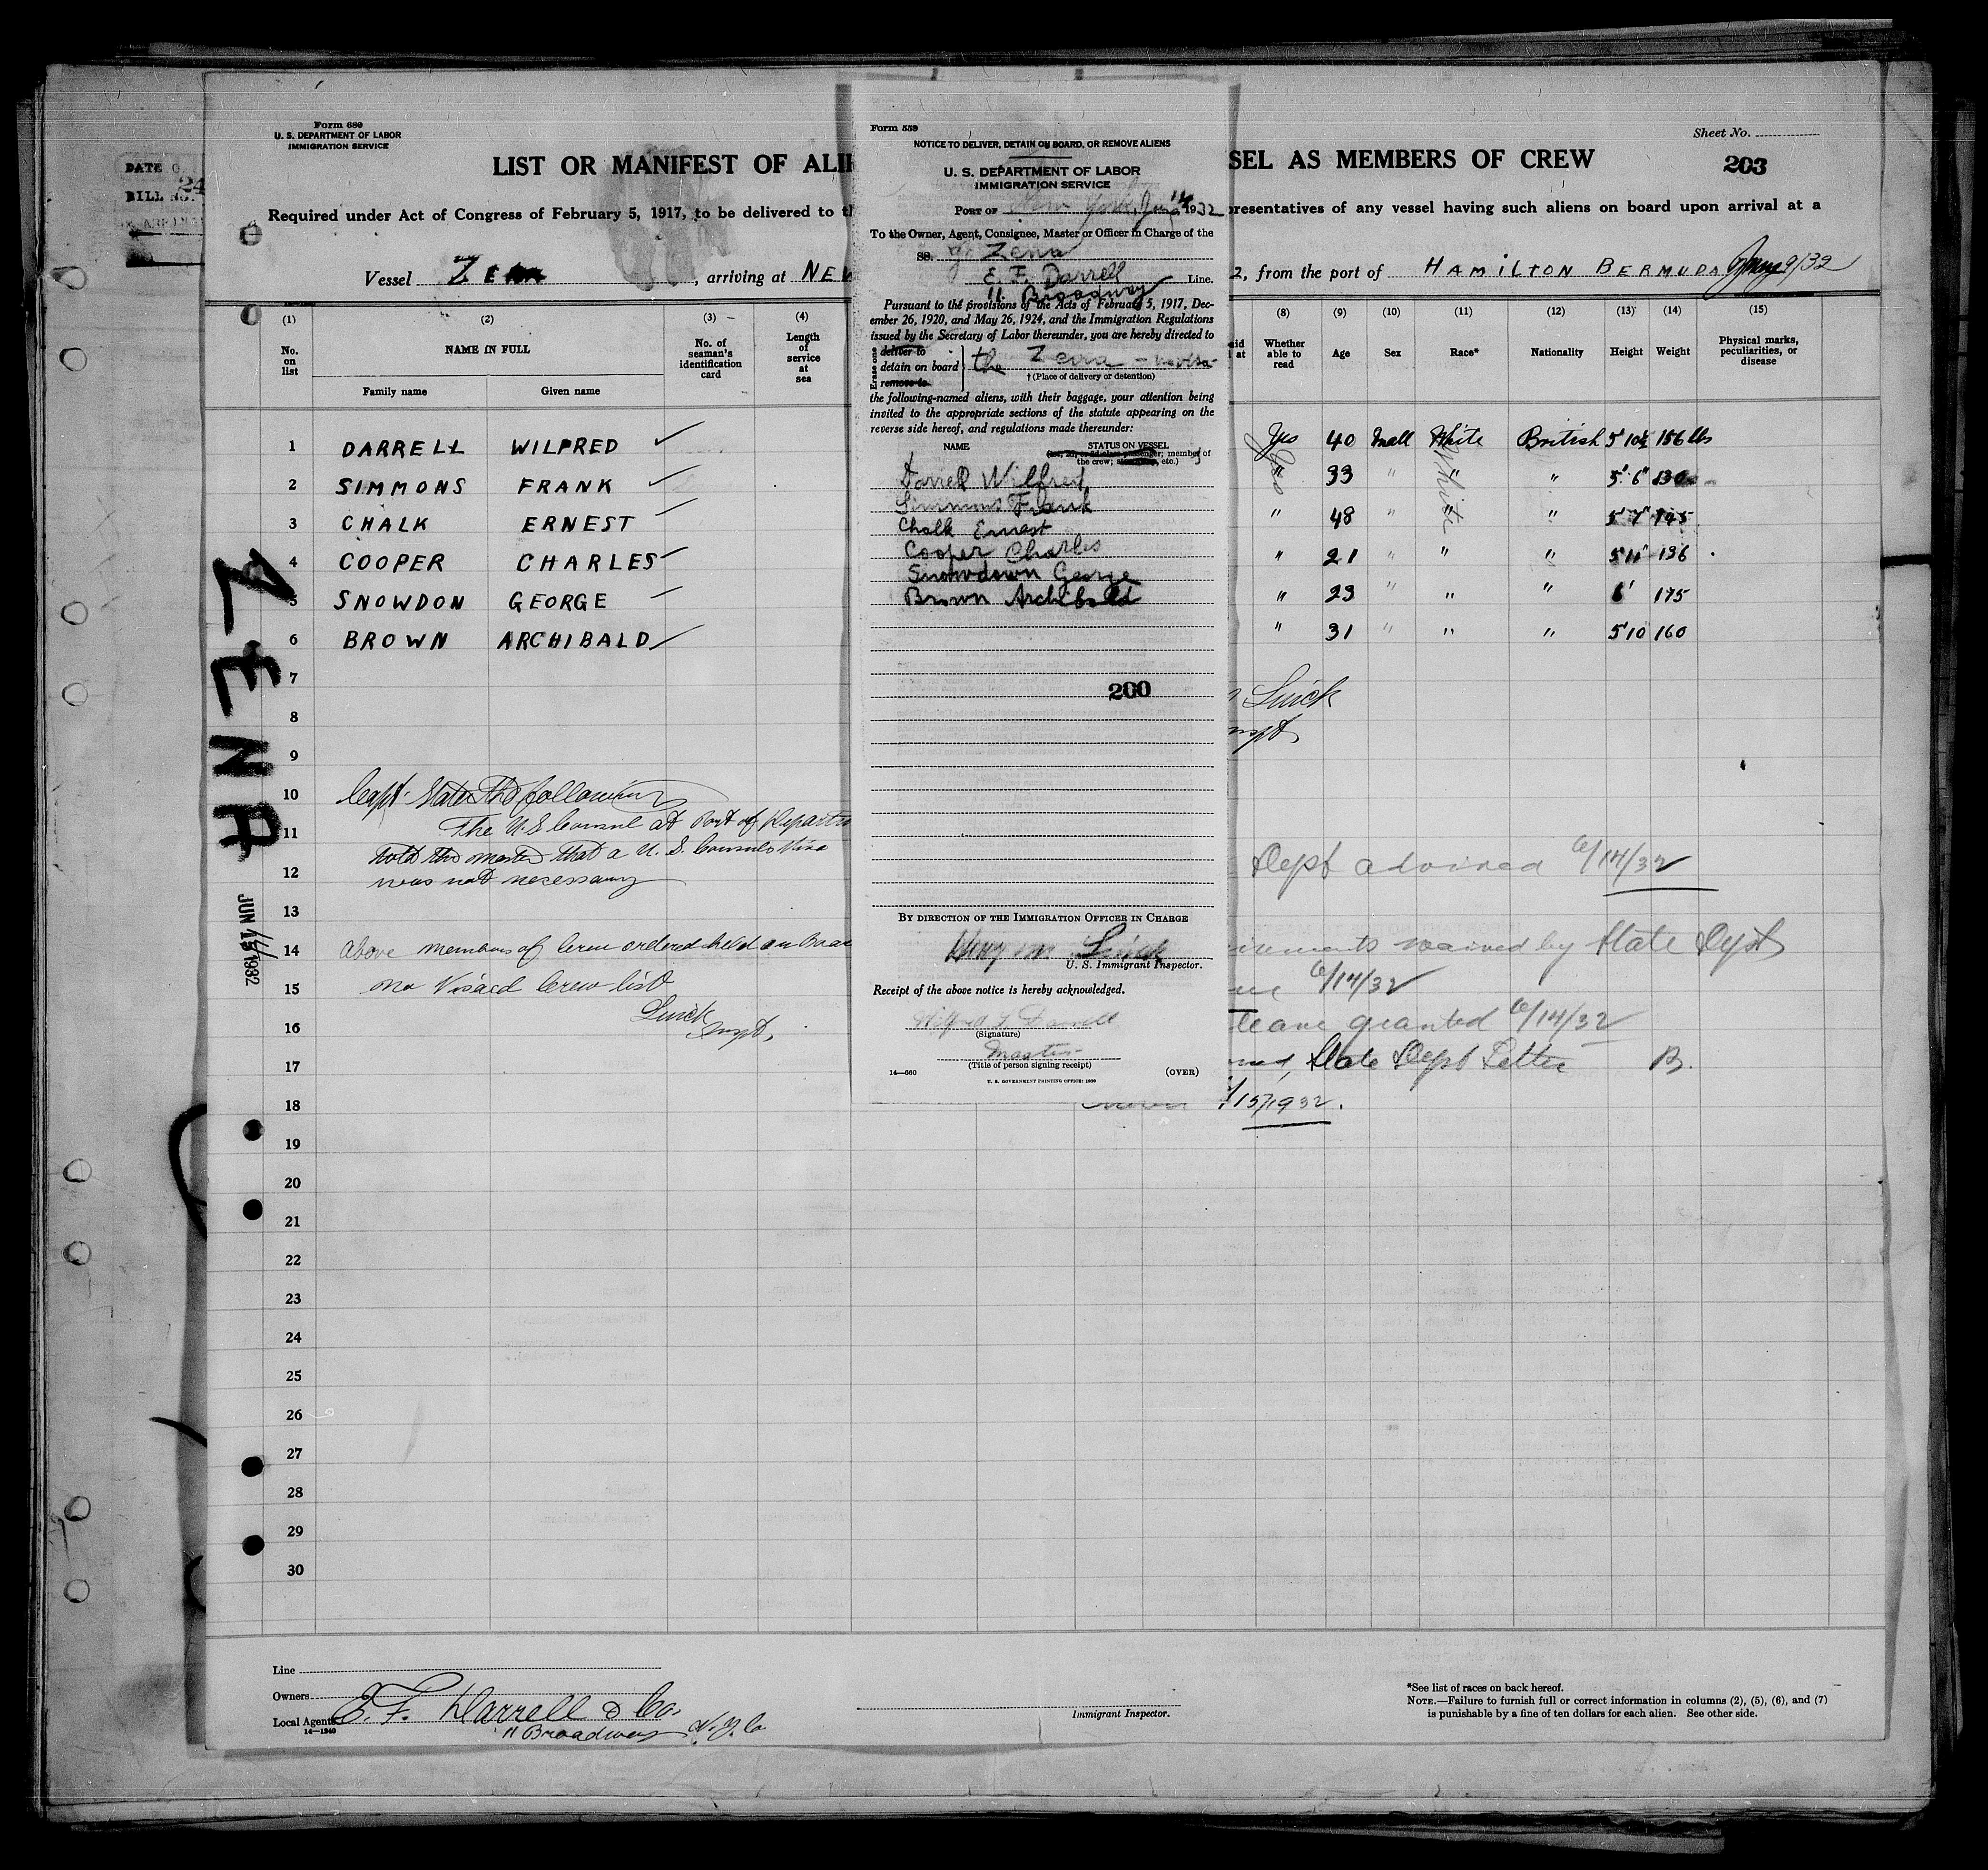 Form 680
U. S. DEPARTMENT OF LABOR
IMMIGRATION SERVICE
Sheet No.
203
LIST OR MANIFEST OF ALIE
SEL AS MEMBERS OF CREW
Required under Act of Congress of February 5, 1917, to be delivered to th
presentatives of any vessel having such aliens on board upon arrival at a
Vessel
, arriving at NEW
2, from the port of HAMILTON BERMUDA 9/32
DATE O
BILL NO. 24
(1) (2) (3) (4) (8) (9) (10) (11) (12) (13) (14) (15)
No. on list
NAME IN FULL
Family name Given name
No. of seaman's identification card
Length of service at sea
Whether able to read
Age
Sex
Race*
Nationality
Height
Weight
Physical marks, peculiarities, or disease
1 DARRELL WILFRED ✓ Yes 40 Mall White British 5' 10½ 156 lbs
2 SIMMONS FRANK ✓ " 33 " " " 5' 6" 130
3 CHALK ERNEST " 48 " " " 5' 7" 145
4 COOPER CHARLES " 21 " " " 5'11" 136
5 SNOWDON GEORGE " 23 " " " 6' 175
6 BROWN ARCHIBALD " 31 " " " 5'10 160
Yes
White
7
8
9
10
11
12
13
14
15
16
17
18
19
20
21
22
23
24
25
26
27
28
29
30
Luick
Inspt.
Capt. States The following
The U.S Consul at Port of Departure
told the master that a U. S. Consuls Visa
was not necessary
above members of Crew ordered held on Boar
no Visaed Crew list
Luick
Inspt.
Dept advised 6/14/32
irements waived by State Dept
6/14/32
leave granted 6/14/32
State Dept Letter B.
/15/1932.
ZENA
JUN 1932
Form 559
NOTICE TO DELIVER, DETAIN ON BOARD, OR REMOVE ALIENS
U. S. DEPARTMENT OF LABOR
IMMIGRATION SERVICE
PORT OF New York, June 14 1932
To the Owner, Agent, Consignee, Master or Officer in Charge of the
SS. Zena
E. F. Darrell Line.
11 Broadway
Pursuant to the provisions of the Acts of February 5, 1917, Dec-
ember 26, 1920, and May 26, 1924, and the Immigration Regulations
issued by the Secretary of Labor thereunder, you are hereby directed to
Erase one
deliver to
detain on board
remove to
the Zena - no visa
† (Place of delivery or detention)
the following-named aliens, with their baggage, your attention being
invited to the appropriate sections of the statute appearing on the
reverse side hereof, and regulations made thereunder:
NAME STATUS ON VESSEL
(1st, 2d, or 3d class passenger; member of
the crew; stowaway, etc.)
Darrell Wilfred
Simmons Frank
Chalk Ernest
Cooper Charles
Snowdown George
Brown Archibald
200
BY DIRECTION OF THE IMMIGRATION OFFICER IN CHARGE
Luick
U. S. Immigrant Inspector.
Receipt of the above notice is hereby acknowledged.
Darrell
(Signature)
Master
(Title of person signing receipt)
14—660 (OVER)
U. S. GOVERNMENT PRINTING OFFICE: 1930
Line
Owners
Local Agents E. F. Darrell & Co.
14—1940
11 Broadway N.Y.C.
Immigrant Inspector.
*See list of races on back hereof.
NOTE.—Failure to furnish full or correct information in columns (2), (5), (6), and (7)
is punishable by a fine of ten dollars for each alien. See other side.